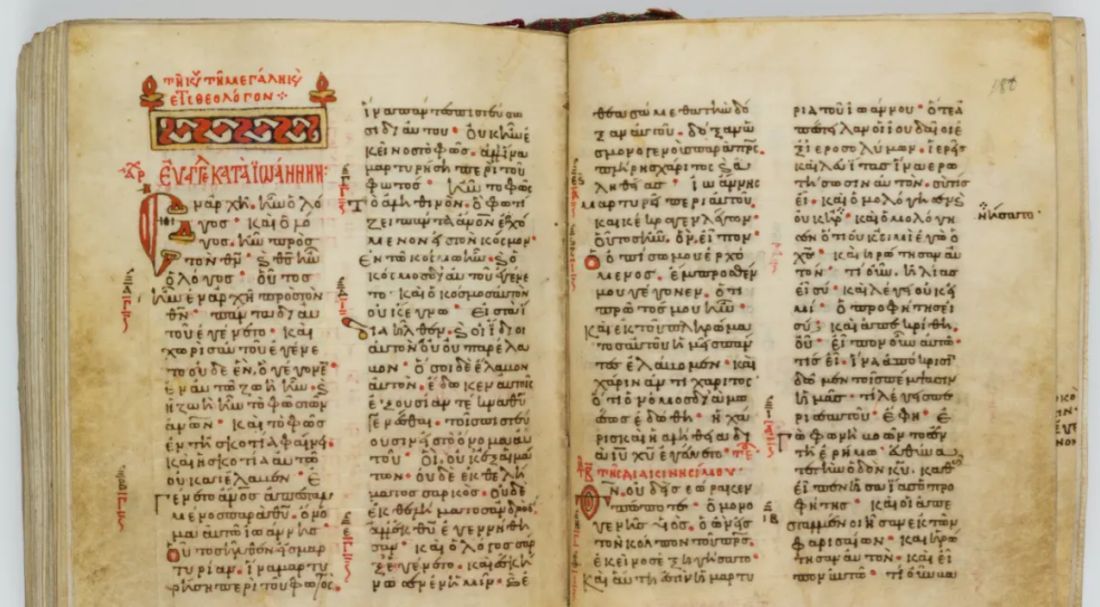 τῆ κυ τῆ μεγάλη κυ
Εὐαγ κατὰ ἰωάννην·
Ἐναρχῆ. ἦν ὁ λό
γος · καὶ ὁ λό
γος. ἦν πρὸς
τὸν θν · κ θς ἦν
ὁ λόγος · οὗτος
ἦν ἐν ἀρχῆ πρὸς τὸν
θν · πάντα δι αυ
τοῦ ἐγένετο · καὶ
χωρὶς αὐτοῦ ἐγένε
το οὐδὲ ἕν, ὃ γέγονεν
ἐν αὐτῶ ζωὴ ἦν · κ
ἡ ζωὴ ἦν τὸ φῶς τῶν
ἀνων · καὶ τὸ φῶς
ἐν τῆ σκοτία φαίνει
καὶ ἡ σκοτία αὐτὸ
οὐ κατέλαβεν · ἐ
γένετο ἄνος ἀπεσταλ
μένος παρὰ θυ · ὄνο
μα αὐτῶ ἰωάννης
οὗτος ἦλθεν εἰς μαρ
τυρίαν · ἵνα μαρτυ
ρήση περὶ τοῦ φωτός·
ἵνα πάντες πιστεύσω
σι δι αὐτοῦ · οὐκ ἦν ἐ
κεῖνος τὸ φῶς. ἀλλ ἵνα
μαρτυρήση περὶ τοῦ
φωτός · ἦν τὸ φῶς
τὸ ἀληθινόν. ὃ φωτί
ζει πάντα ἄνον ἐρχό
μενον εἰς τὸν κόσμον·
Ἐν τῶ κόσμω ἦν · κ ὁ
κόσμος δι αὐτοῦ ἐγένε
το · καὶ ὁ κόσμος αὐτὸν
οὐκ ἔγνω · εἰς τὰ ἴ
δια ἦλθεν. κ οἱ ἴδιοι
αὐτὸν οὐ παρέλα
βον · ὅσοι δὲ ἔλαβον
αὐτὸν · ἔδωκεν αὐτοῖς
ἐξουσίαν τέκνα θυ
γενέσθαι · τοῖς πιστεύ
ουσιν εἰς τὸ ὄνομα αὐ
τοῦ · οἳ, οὐκ ἐξ αἱμά
των · οὐδὲ ἐκ θελή
ματος σαρκὸς · οὐδὲ
ἐκ θελήματος ἀνδρὸς·
ἀλλ ἐκ θυ ἐγεννήθη
σαν · καὶ ὁ λόγος σὰρ
ξ ἐγένετο · καὶ ἐσκή
νωσεν ἐν ἡμῖν · κ ἐ
θεασάμεθα τὴν δό
ξαν αὐτοῦ · δόξαν ὡ
ς μονογενοῦς παρὰ πρς.
πλήρης χάριτος κ ἀ
ληθείας · ἰωάννης
μαρτυρεῖ περὶ αὐτοῦ
καὶ κέκραγεν λέγων·
οὗτος ἦν. ὃν εἶπον ·
ὁ ὀπίσω μου ἐρχό
μενος. ἔμπροσθέν
μου γέγονεν. ὅτι
πρῶτός μου ἦν ·
Καὶ ἐκ τοῦ πληρώμα
τος αὐτοῦ ἡμεῖς πάν
τες ἐλάβομεν · καὶ
χάριν ἀντὶ χάριτος·
ὅτι ὁ νόμος διὰ μω
σέως ἐδόθη · ἡ χά
ρις καὶ ἡ ἀλήθεια δι
ὰ ιυ χυ ἐγένετο ·
τῆς διακινησίμου·
Θν. οὐδεὶς ἑώρακεν
πώποτε · ὁ μονο
γενὴς υἱός. ὁ ὢν εἰς
τὸν κόλπον τοῦ πρς.
ἐκεῖνος ἐξηγήσατο
Καὶ αὕτη ἐστὶν ἡ μαρτυ
ρία τοῦ ἰωάννου · ὅτε ἀ
πέστειλαν οἱ ἰουδαῖοι ἐ
ξ ἱεροσολύμων · ἱερεῖς
καὶ λευίτας ἵνα ἐρω
τήσωσιν αὐτόν. σὺ τίς
εἶ · καὶ ὡμολόγησεν κ
οὐκ ἠρ · καὶ ὁμολόγη
σεν ὅτι οὐκ εἰμὶ ἐγὼ ὁ
χς · καὶ ἠρώτησαν αὐ
τόν · τί οὖν. ἠλίας
εἶ σύ · καὶ λέγει οὐκ εἰ
μί · ὁ προφήτης εἶ
σύ; καὶ ἀπεκρίθη.
οὔ · εἶπον οὖν αὐτῶ·
τίς εἶ · ἵνα ἀπόκρισι
δῶμεν τοῖς πέμψασιν
ἡμᾶς · τί λέγεις πε
ρὶ σεαυτοῦ · ἔφη · ἐ
γὼ φωνὴ βοῶντος ἐν
τῆ ἐρήμω · εὐθύνα
τε τὴν ὁδὸν κυ. καθ
εἶπεν ἡσαΐας ὁ προ
φήτης · καὶ οἱ ἀπε
σταλμένοι ἦσαν ἐκ τῶν
φαρισαίων · καὶ ἠρώ
τησαν αὐτὸν · καὶ εἶ
πον αὐτῶ · τί οὖν βα